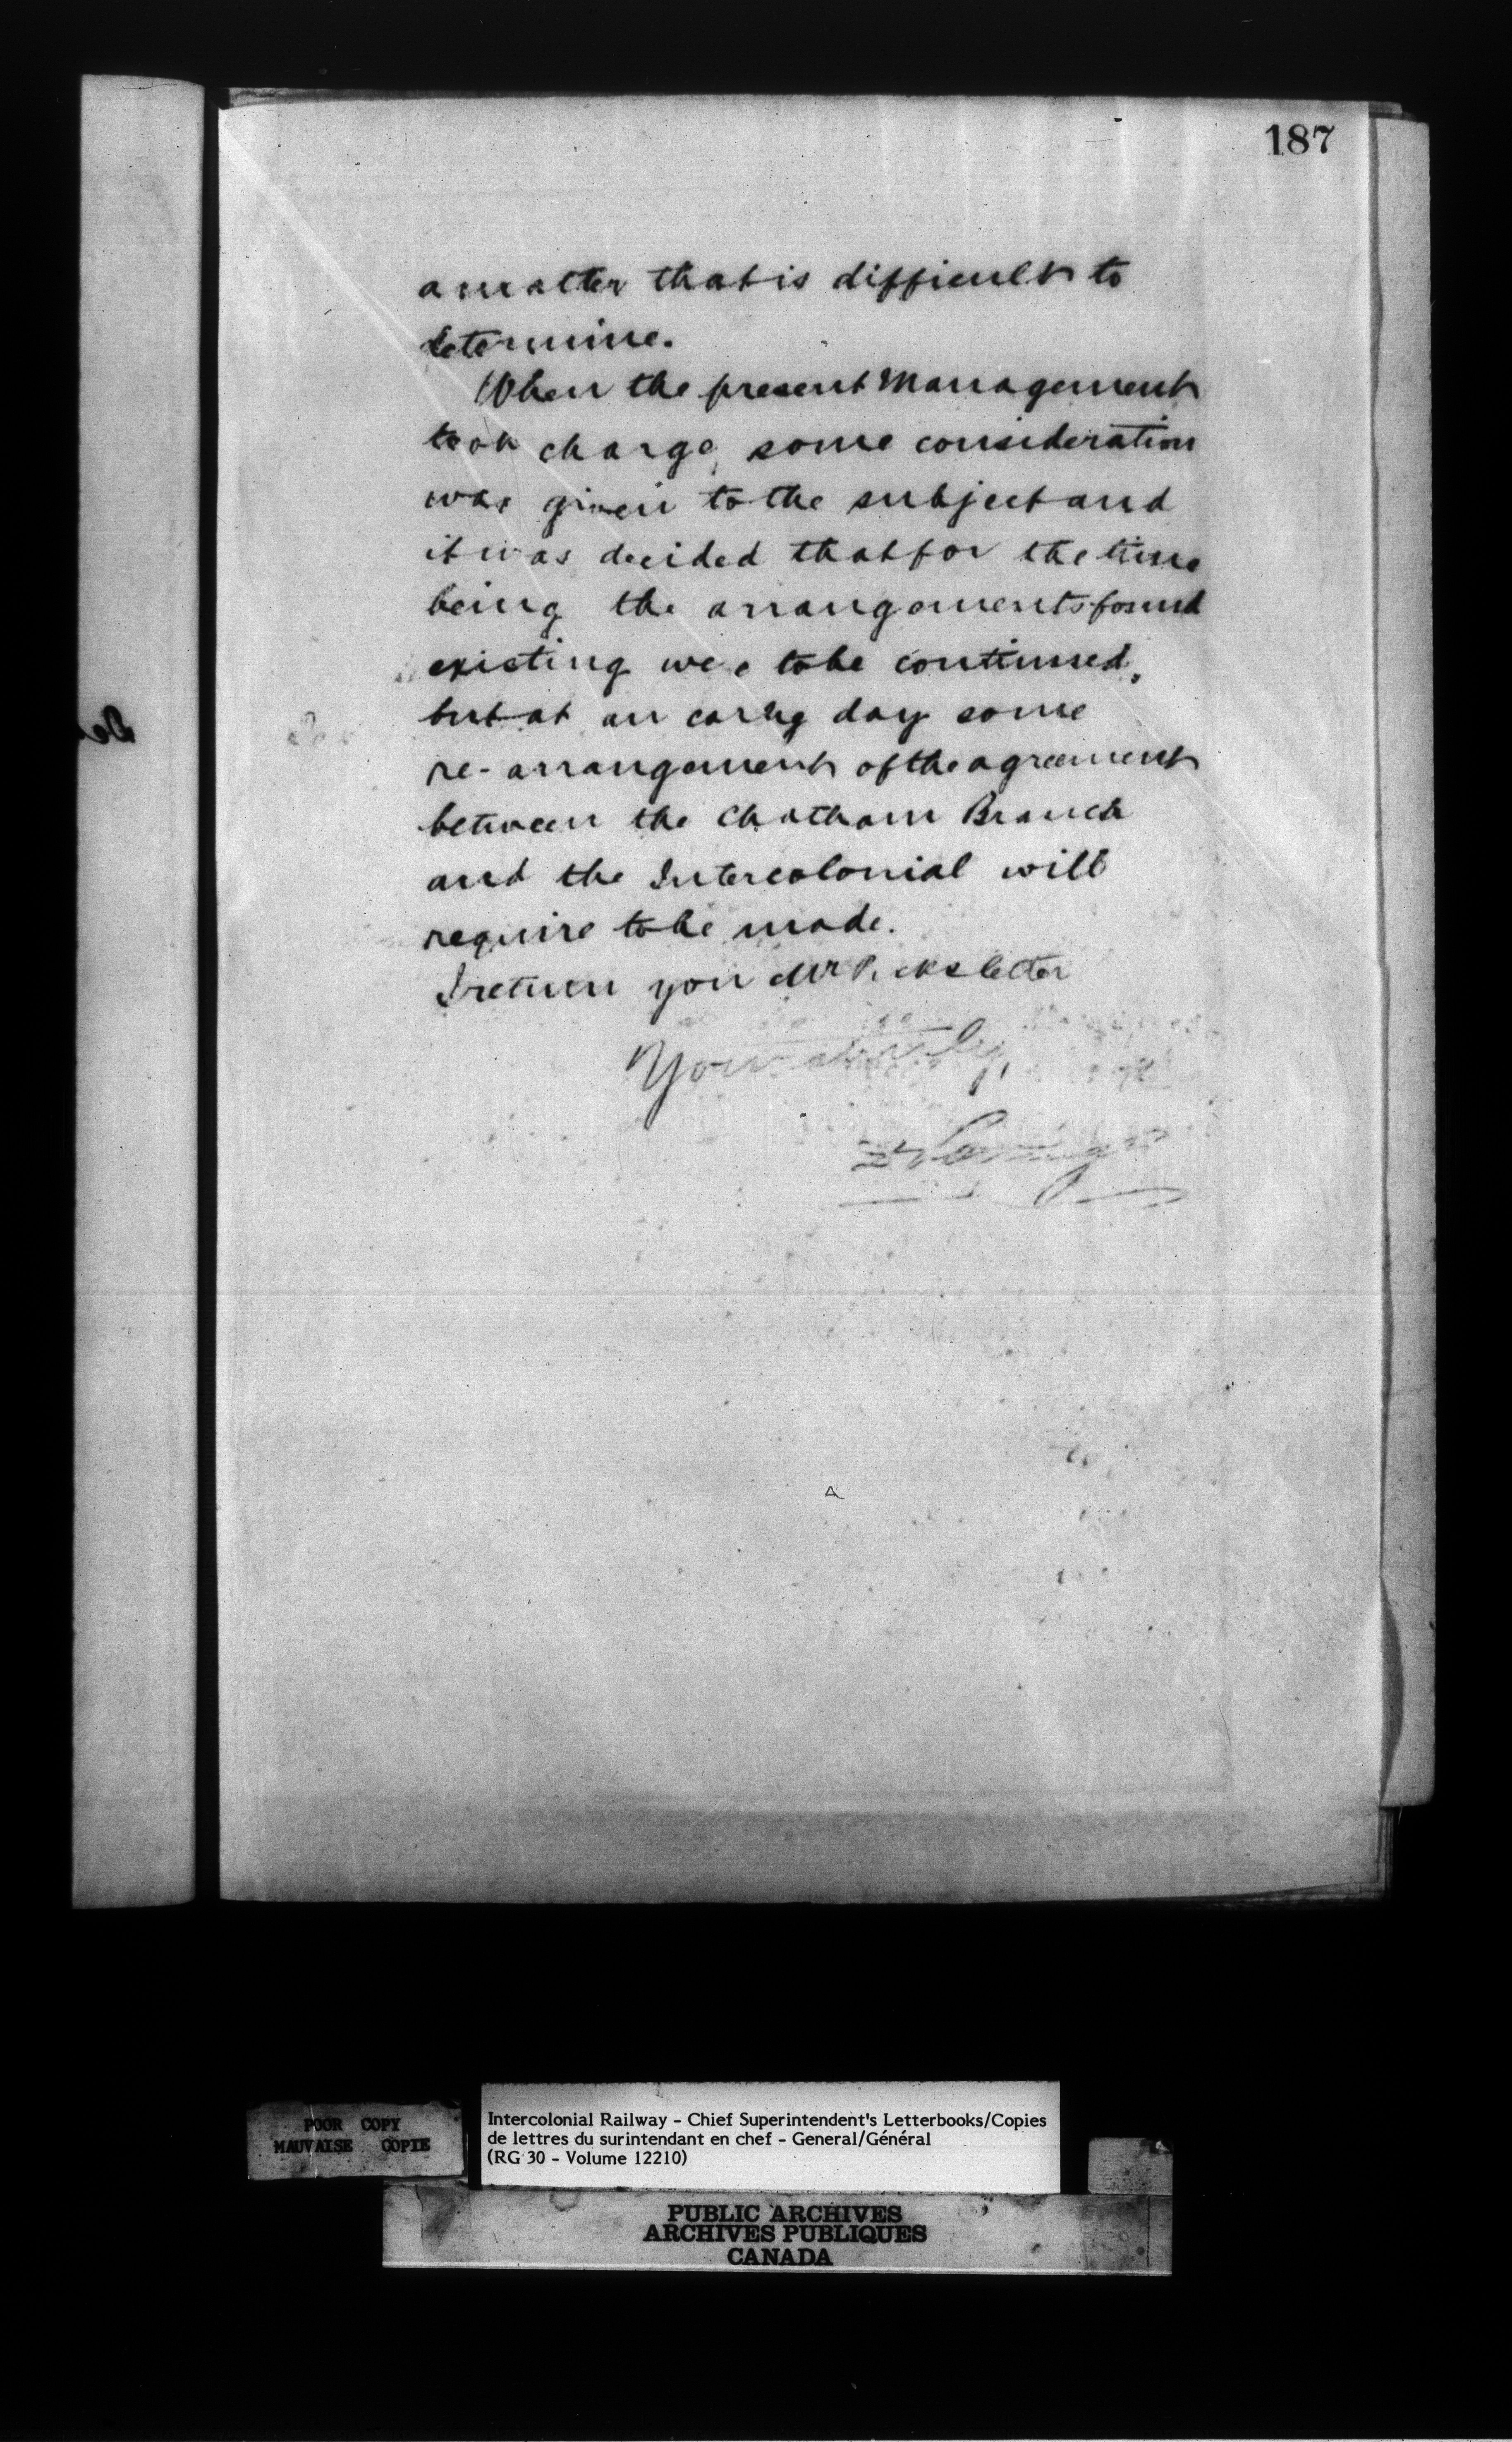 187
a matter that is difficult to
determine.
When the present Management
took charge, some consideration
was given to the subject and
it was decided that for the time
being the arrangements found
existing were to be continued,
but at an early day some
re-arrangement of the agreement
between the Chatham Branch
and the Intercolonial will
require to be made.
I return you Mr letter
Yours
POOR COPY
MAUVAISE COPIE
Intercolonial Railway - Chief Superintendent's Letterbooks/Copies
de lettres du surintendant en chef - General/Général
(RG 30 - Volume 12210)
PUBLIC ARCHIVES
ARCHIVES PUBLIQUES
CANADA